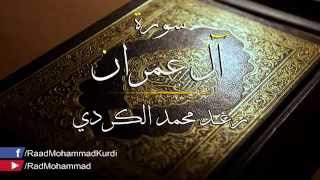 سورة
آل عمران
رعد محمد الكردي
/RaadMohammadKurdi
/RadMohammad